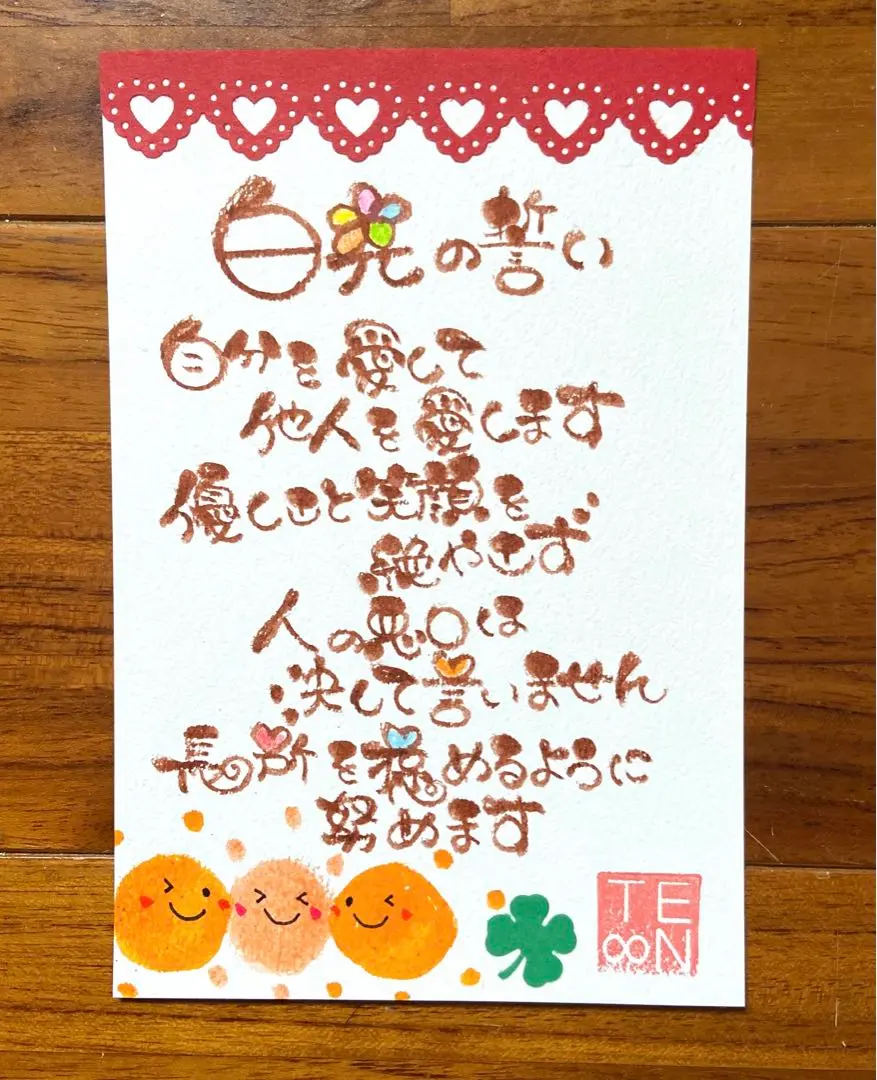 白光の誓い
自分を愛して
他人を愛します
優しさと笑顔を
絶やさず
人の悪口は
決して言いません
長所を褒めるように
努めます
TE
∞N